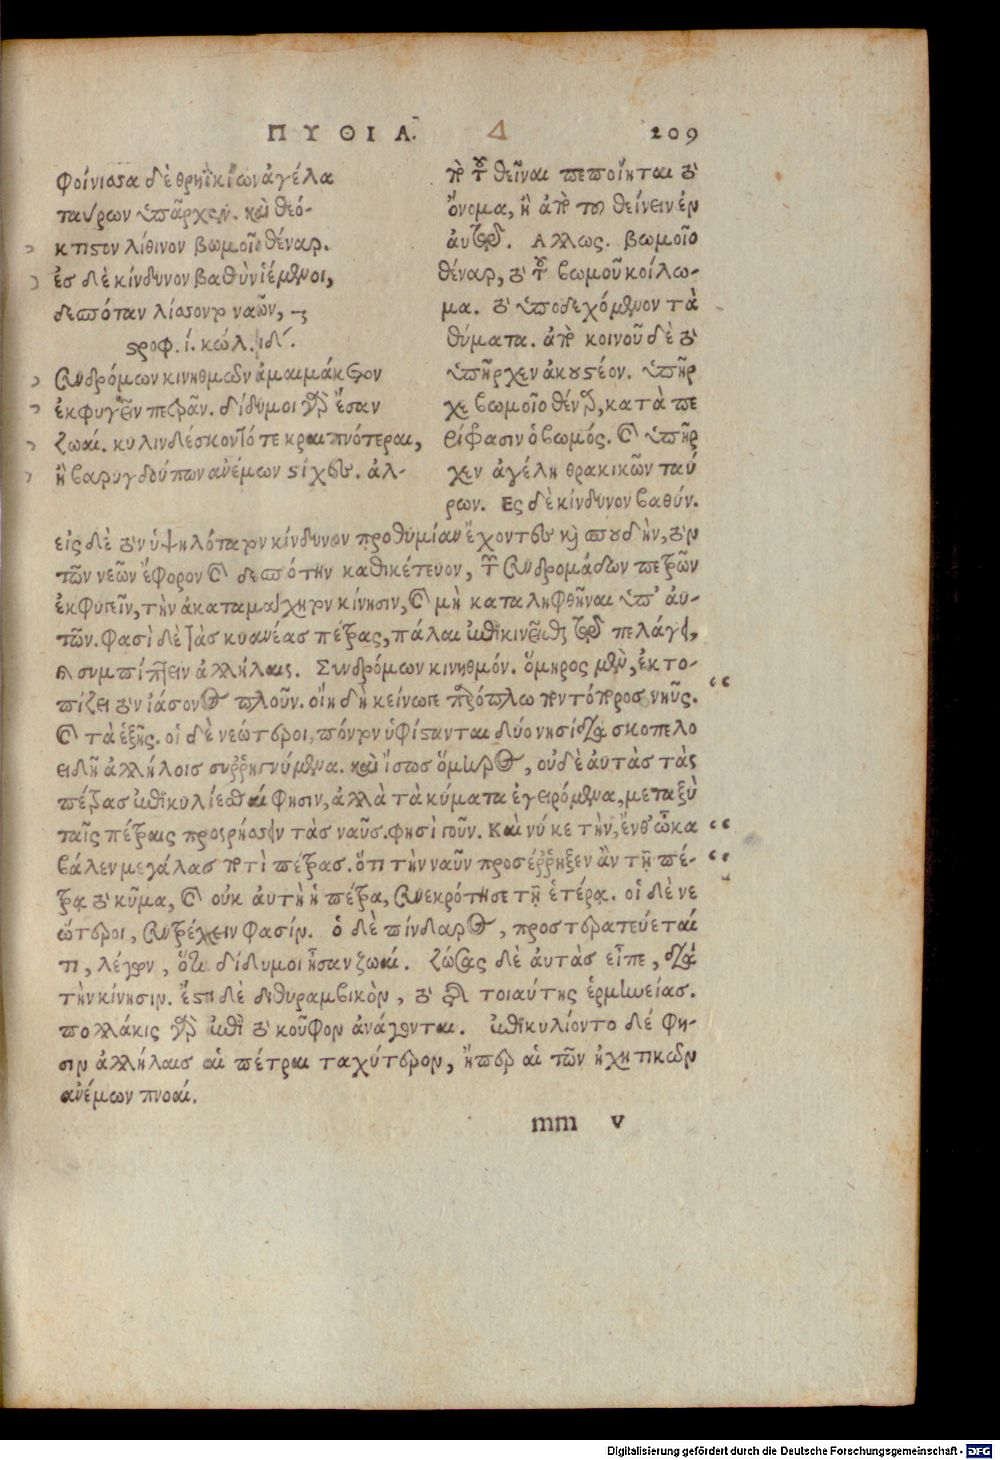 ΠΥΘΙΑ. Δ 209
φοίνιοσα δὲ θρηϊκίων ἀγέλα
ταύρων ὑπᾶρχεν. καὶ θεό-
κτιστον λίθινον βωμοῖο θέναρ.
ἐσ δὲ κίνδυνον βαθὺν ἱέμενοι,
δεσπόταν λίοσοντο ναῶν,
στροφ. ί. κώλ. ιδʹ.
συνδρόμων κινηθμῶν ἀμαιμάκετον
ἐκφυγεῖν πετρᾶν. δίδυμοι γὰρ ἔσαν
ζωαί. κυλινδέσκοντό τε κραιπνότεραι,
ἢ βαρυγδούπων ἀνέμων στίχες. ἀλ-
παρὰ τὸ θεῖναι πεποίηται τὸ
ὄνομα, ἢ ἀπὸ τοῦ θείνειν ἐν
αὐτῷ. Αλλως. βωμοῖο
θέναρ, τὸ τοῦ βωμοῦ κοίλω-
μα. τὸ ὑποδεχόμενον τὰ
θύματα. ἀπὸ κοινοῦ δὲ τὸ
ὑπῆρχεν ἀκουστέον. ὑπῆρ
χε βωμοῖο θέναρ, κατὰ πε
ρίφρασιν ὁ βωμός. καὶ ὑπῆρ
χεν ἀγέλη θρακικῶν ταύ
ρων. Ες δὲ κίνδυνον βαθύν.
εἰς δὲ τὸν ὑψηλότατον κίνδυνον προθυμίαν ἔχοντες καὶ σπουδὴν, τὸν
τῶν νεῶν ἔφορον καὶ δεσπότην καθικέτευον, τῶν συνδρομάδων πετρῶν
ἐκφυγεῖν, τὴν ἀκαταμάχητον κίνησιν, καὶ μὴ καταληφθῆναι ὑπ' αὐ-
τῶν. φασὶ δὲ τὰς κυανέας πέτρας, πάλαι ἐπικινεῖσθαι τῷ πελάγει,
καὶ συμπίπτειν ἀλλήλαις. Συνδρόμων κινηθμόν. ὅμηρος μὲν, ἐκτο-
πίζει τὸν ἰάσονος πλοῦν. οἴη δὴ κείνωγε παρέπλω ποντόπορος νηῦς.
καὶ τὰ ἑξῆς. οἱ δὲ νεώτεροι, πόντον ὑφίστανται δύο νησίδια σκοπελο
ειδῆ ἀλλήλοισ συῤῥηγνύμενα. καὶ ἴσωσ ὅμηρος, οὐδὲ ἀυτὰσ τὰς
πέτρασ ἐπικυλίεσθαί φησιν, ἀλλὰ τὰ κύματα ἐγειρόμενα, μεταξὺ
ταῖς πέτραις προσρήσσειν τὰσ ναῦσ. φησὶ γοῦν. Καὶ νύ κε τὴν, ἔνθ' ὦκα
βάλεν μεγάλασ ποτὶ πέτρασ. ὅτι τὴν ναῦν προσέῤῥηξεν ἂν τῇ πέ-
τρᾳ τὸ κῦμα, καὶ οὐκ ἀυτὴ ἡ πέτρα, συνεκρότησε τῇ ἑτέρᾳ. οἱ δὲ νε
ώτεροι, συντρέχειν φασίν. ὁ δὲ πίνδαρος, προστερατεύεταί
τι, λέγων, ὅτι δίδυμοι ἦσαν ζωαί. ζώσας δὲ ἀυτὰσ εἶπε, διὰ
τὴν κίνησιν. ἔστι δὲ διθυραμβικὸν, τὸ τῆς τοιαύτης ἑρμηνείας.
πολλάκις γὰρ ἐπὶ τὸ κοῦφον ἀνάγονται. ἐπικυλίοντο δέ φη-
σιν ἀλλήλαισ αἱ πέτραι ταχύτερον, ἤπερ αἱ τῶν ἠχητικῶν
ἀνέμων πνοαί.
mm v
Digitalisierung gefördert durch die Deutsche Forschungsgemeinschaft - DFG